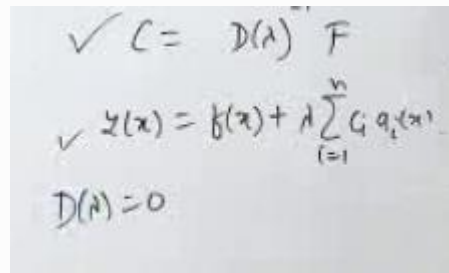 ✓ C = D(λ)⁻¹ F
✓ y(x) = f(x) + λ ∑ᵢ₌₁ⁿ Cᵢ aᵢ(x)
D(λ) = 0